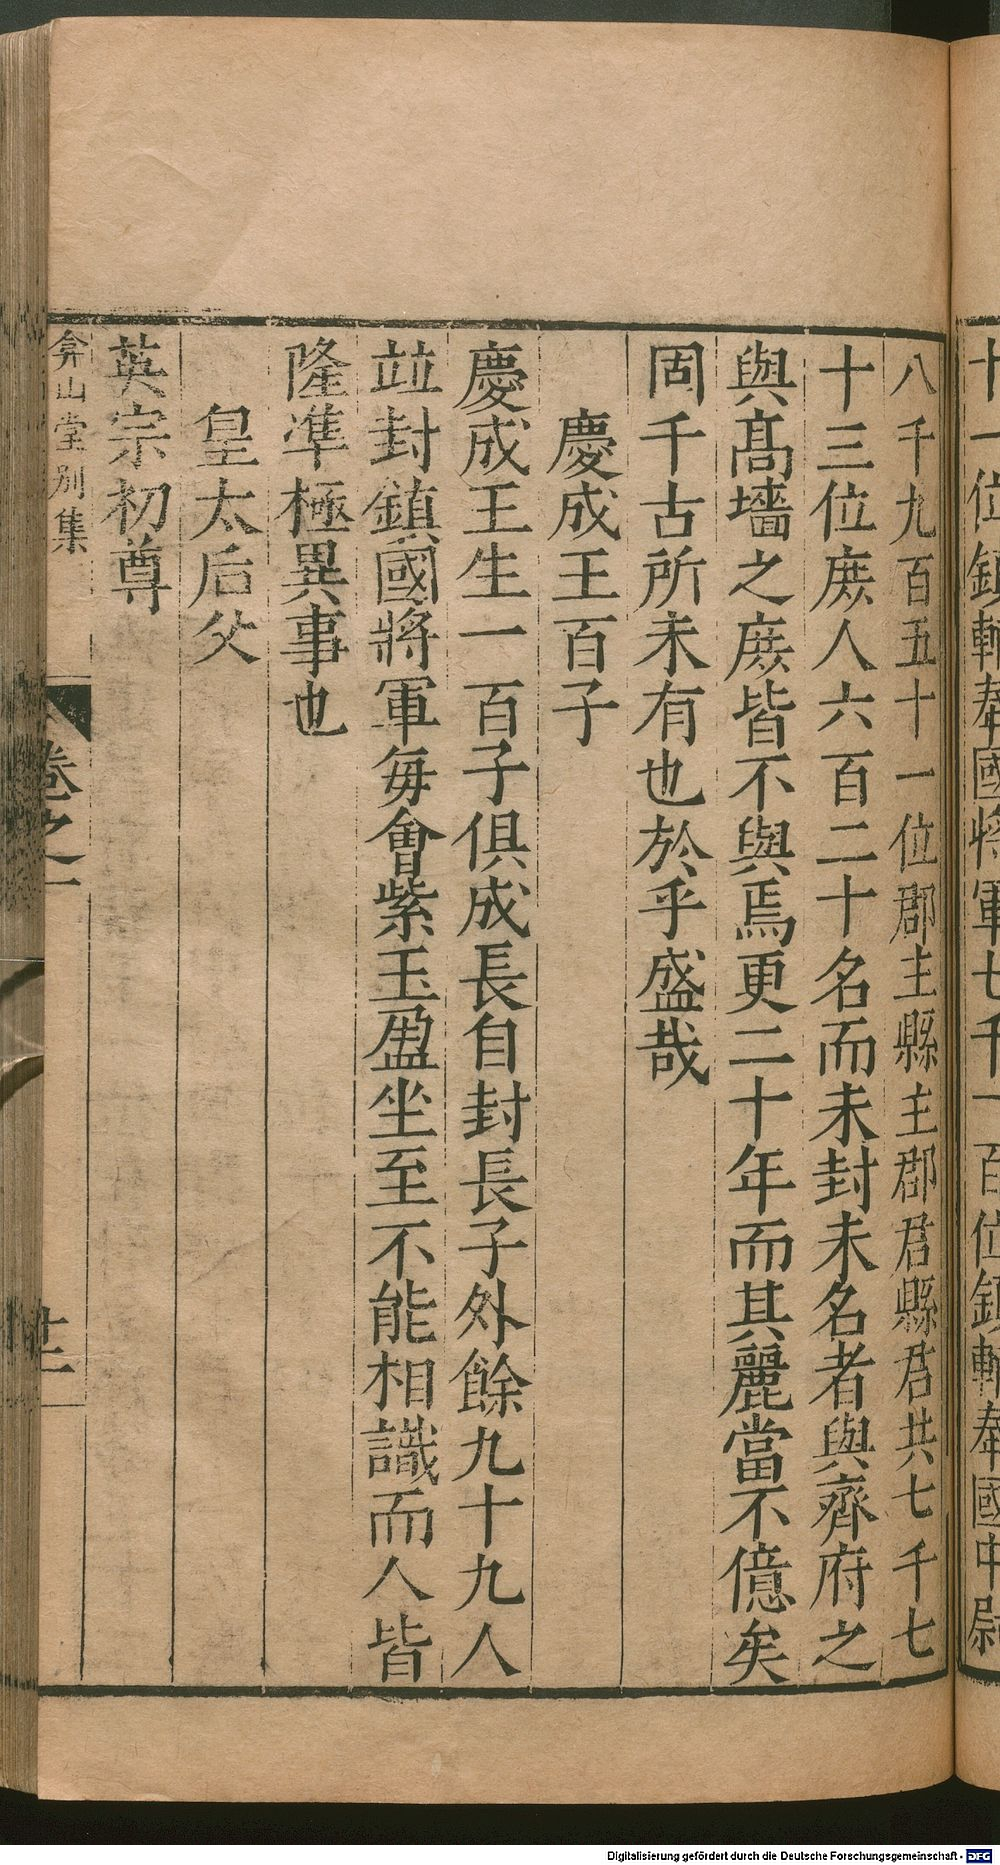 十一位鎮輔奉國將軍七千一百位鎮輔奉國中尉
八千九百五十一位郡主縣主郡君縣君共七千七
十三位庶人六百二十名而未封未名者與齊府之
與髙墻之庶皆不與焉更二十年而其麗當不億矣
固千古所未有也於乎盛哉
慶成王百子
慶成王生一百子俱成長自封長子外餘九十九人
竝封鎮國將軍每會紫玉盈坐至不能相識而人皆
隆準極異事也
皇太后父
英宗初尊
弇山堂別集
卷之一
廿二
Digitalisierung gefördert durch die Deutsche Forschungsgemeinschaft - DFG